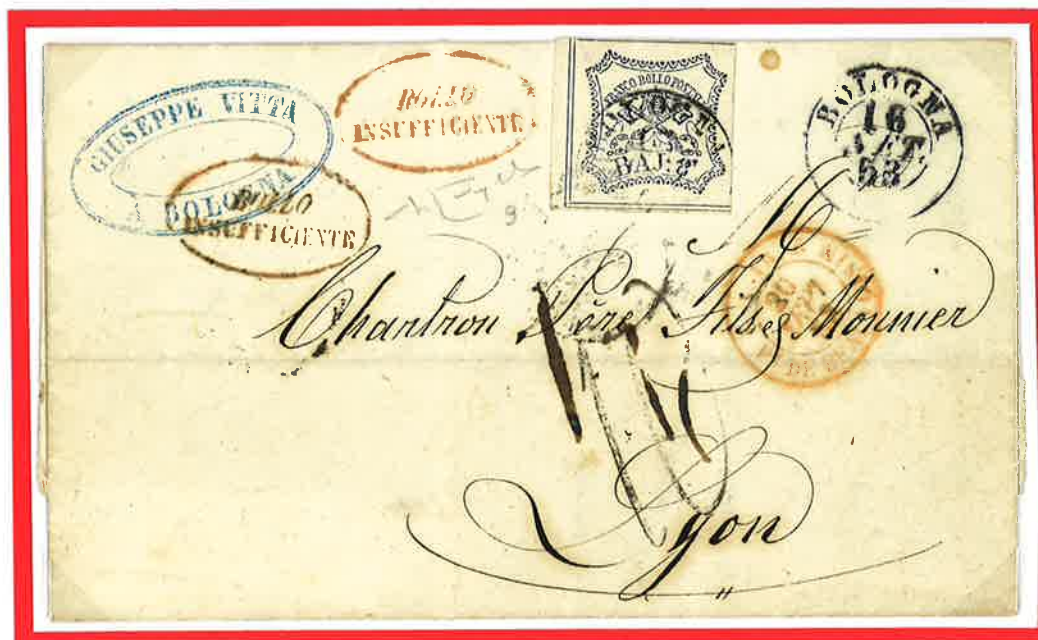 GIUSEPPE VITTA
BOLOGNA
BOLLO
INSUFFICIENTE
BOLLO
INSUFFICIENTE
FRANCO BOLLO POSTALE
BAJ: 8
BOLOGNA
16
SET.
53
M
Chartron Père Fils & Monnier
Lyon